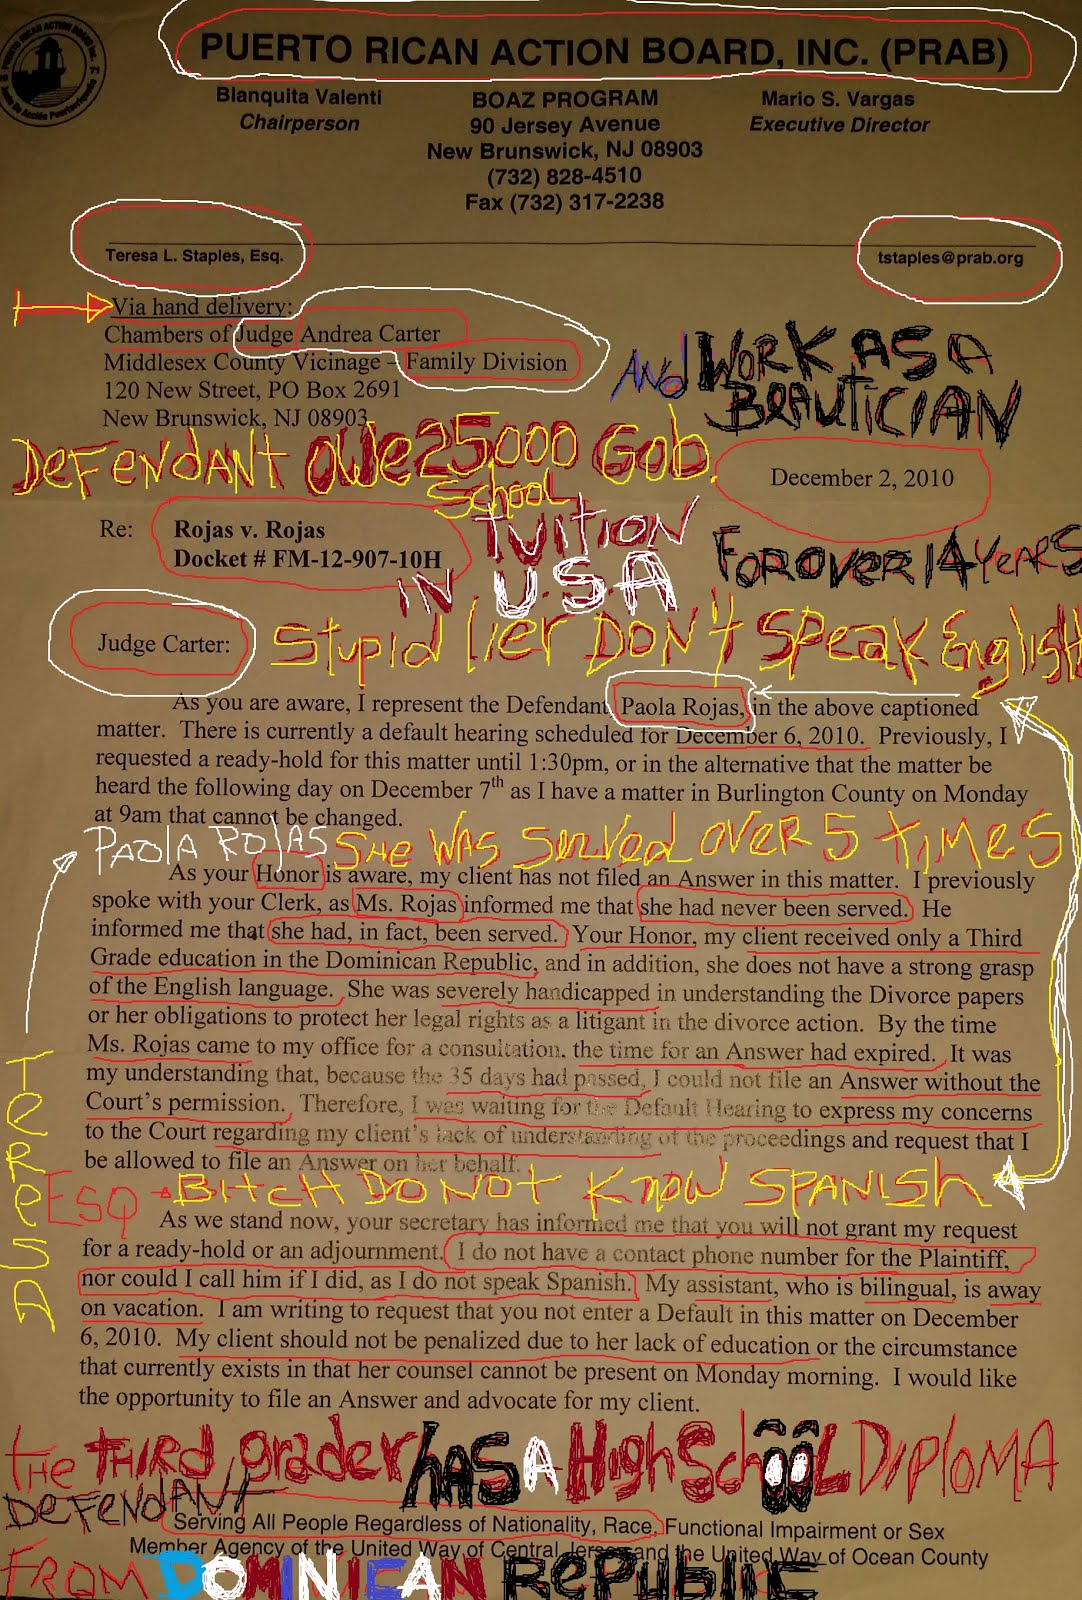 PUERTO RICAN ACTION BOARD, INC. (PRAB)
Blanquita Valenti
Chairperson
BOAZ PROGRAM
90 Jersey Avenue
New Brunswick, NJ 08903
(732) 828-4510
Fax (732) 317-2238
Mario S. Vargas
Executive Director
Teresa L. Staples, Esq.
tstaples@prab.org
Via hand delivery:
Chambers of Judge Andrea Carter
Middlesex County Vicinage – Family Division
120 New Street, PO Box 2691
New Brunswick, NJ 08903
AND WORK AS A
BEAUTICIAN
DEFENDANT OWE 25,000 GOB.
SCHOOL
TUITION
IN U.S.A
December 2, 2010
FOR OVER 14 YEARS
Re: Rojas v. Rojas
Docket # FM-12-907-10H
Judge Carter:
STUPID LIER DON'T SPEAK English
As you are aware, I represent the Defendant, Paola Rojas, in the above captioned
matter. There is currently a default hearing scheduled for December 6, 2010. Previously, I
requested a ready-hold for this matter until 1:30pm, or in the alternative that the matter be
heard the following day on December 7th as I have a matter in Burlington County on Monday
at 9am that cannot be changed.
PAOLA ROJAS SHE WAS SERVED OVER 5 TIMES
As your Honor is aware, my client has not filed an Answer in this matter. I previously
spoke with your Clerk, as Ms. Rojas informed me that she had never been served. He
informed me that she had, in fact, been served. Your Honor, my client received only a Third
Grade education in the Dominican Republic, and in addition, she does not have a strong grasp
of the English language. She was severely handicapped in understanding the Divorce papers
or her obligations to protect her legal rights as a litigant in the divorce action. By the time
Ms. Rojas came to my office for a consultation, the time for an Answer had expired. It was
my understanding that, because the 35 days had passed, I could not file an Answer without the
Court's permission. Therefore, I was waiting for the Default Hearing to express my concerns
to the Court regarding my client's lack of understanding of the proceedings and request that I
be allowed to file an Answer on her behalf.
TEReSA
ESQ BITCH DO NOT KNOW SPANISH
As we stand now, your secretary has informed me that you will not grant my request
for a ready-hold or an adjournment. I do not have a contact phone number for the Plaintiff,
nor could I call him if I did, as I do not speak Spanish. My assistant, who is bilingual, is away
on vacation. I am writing to request that you not enter a Default in this matter on December
6, 2010. My client should not be penalized due to her lack of education or the circumstance
that currently exists in that her counsel cannot be present on Monday morning. I would like
the opportunity to file an Answer and advocate for my client.
THE THIRD grader HAS A High School DIPLOMA
DEFENDANT
Serving All People Regardless of Nationality, Race, Functional Impairment or Sex
Member Agency of the United Way of Central Jersey and the United Way of Ocean County
FROM DOMINICAN RePubliC